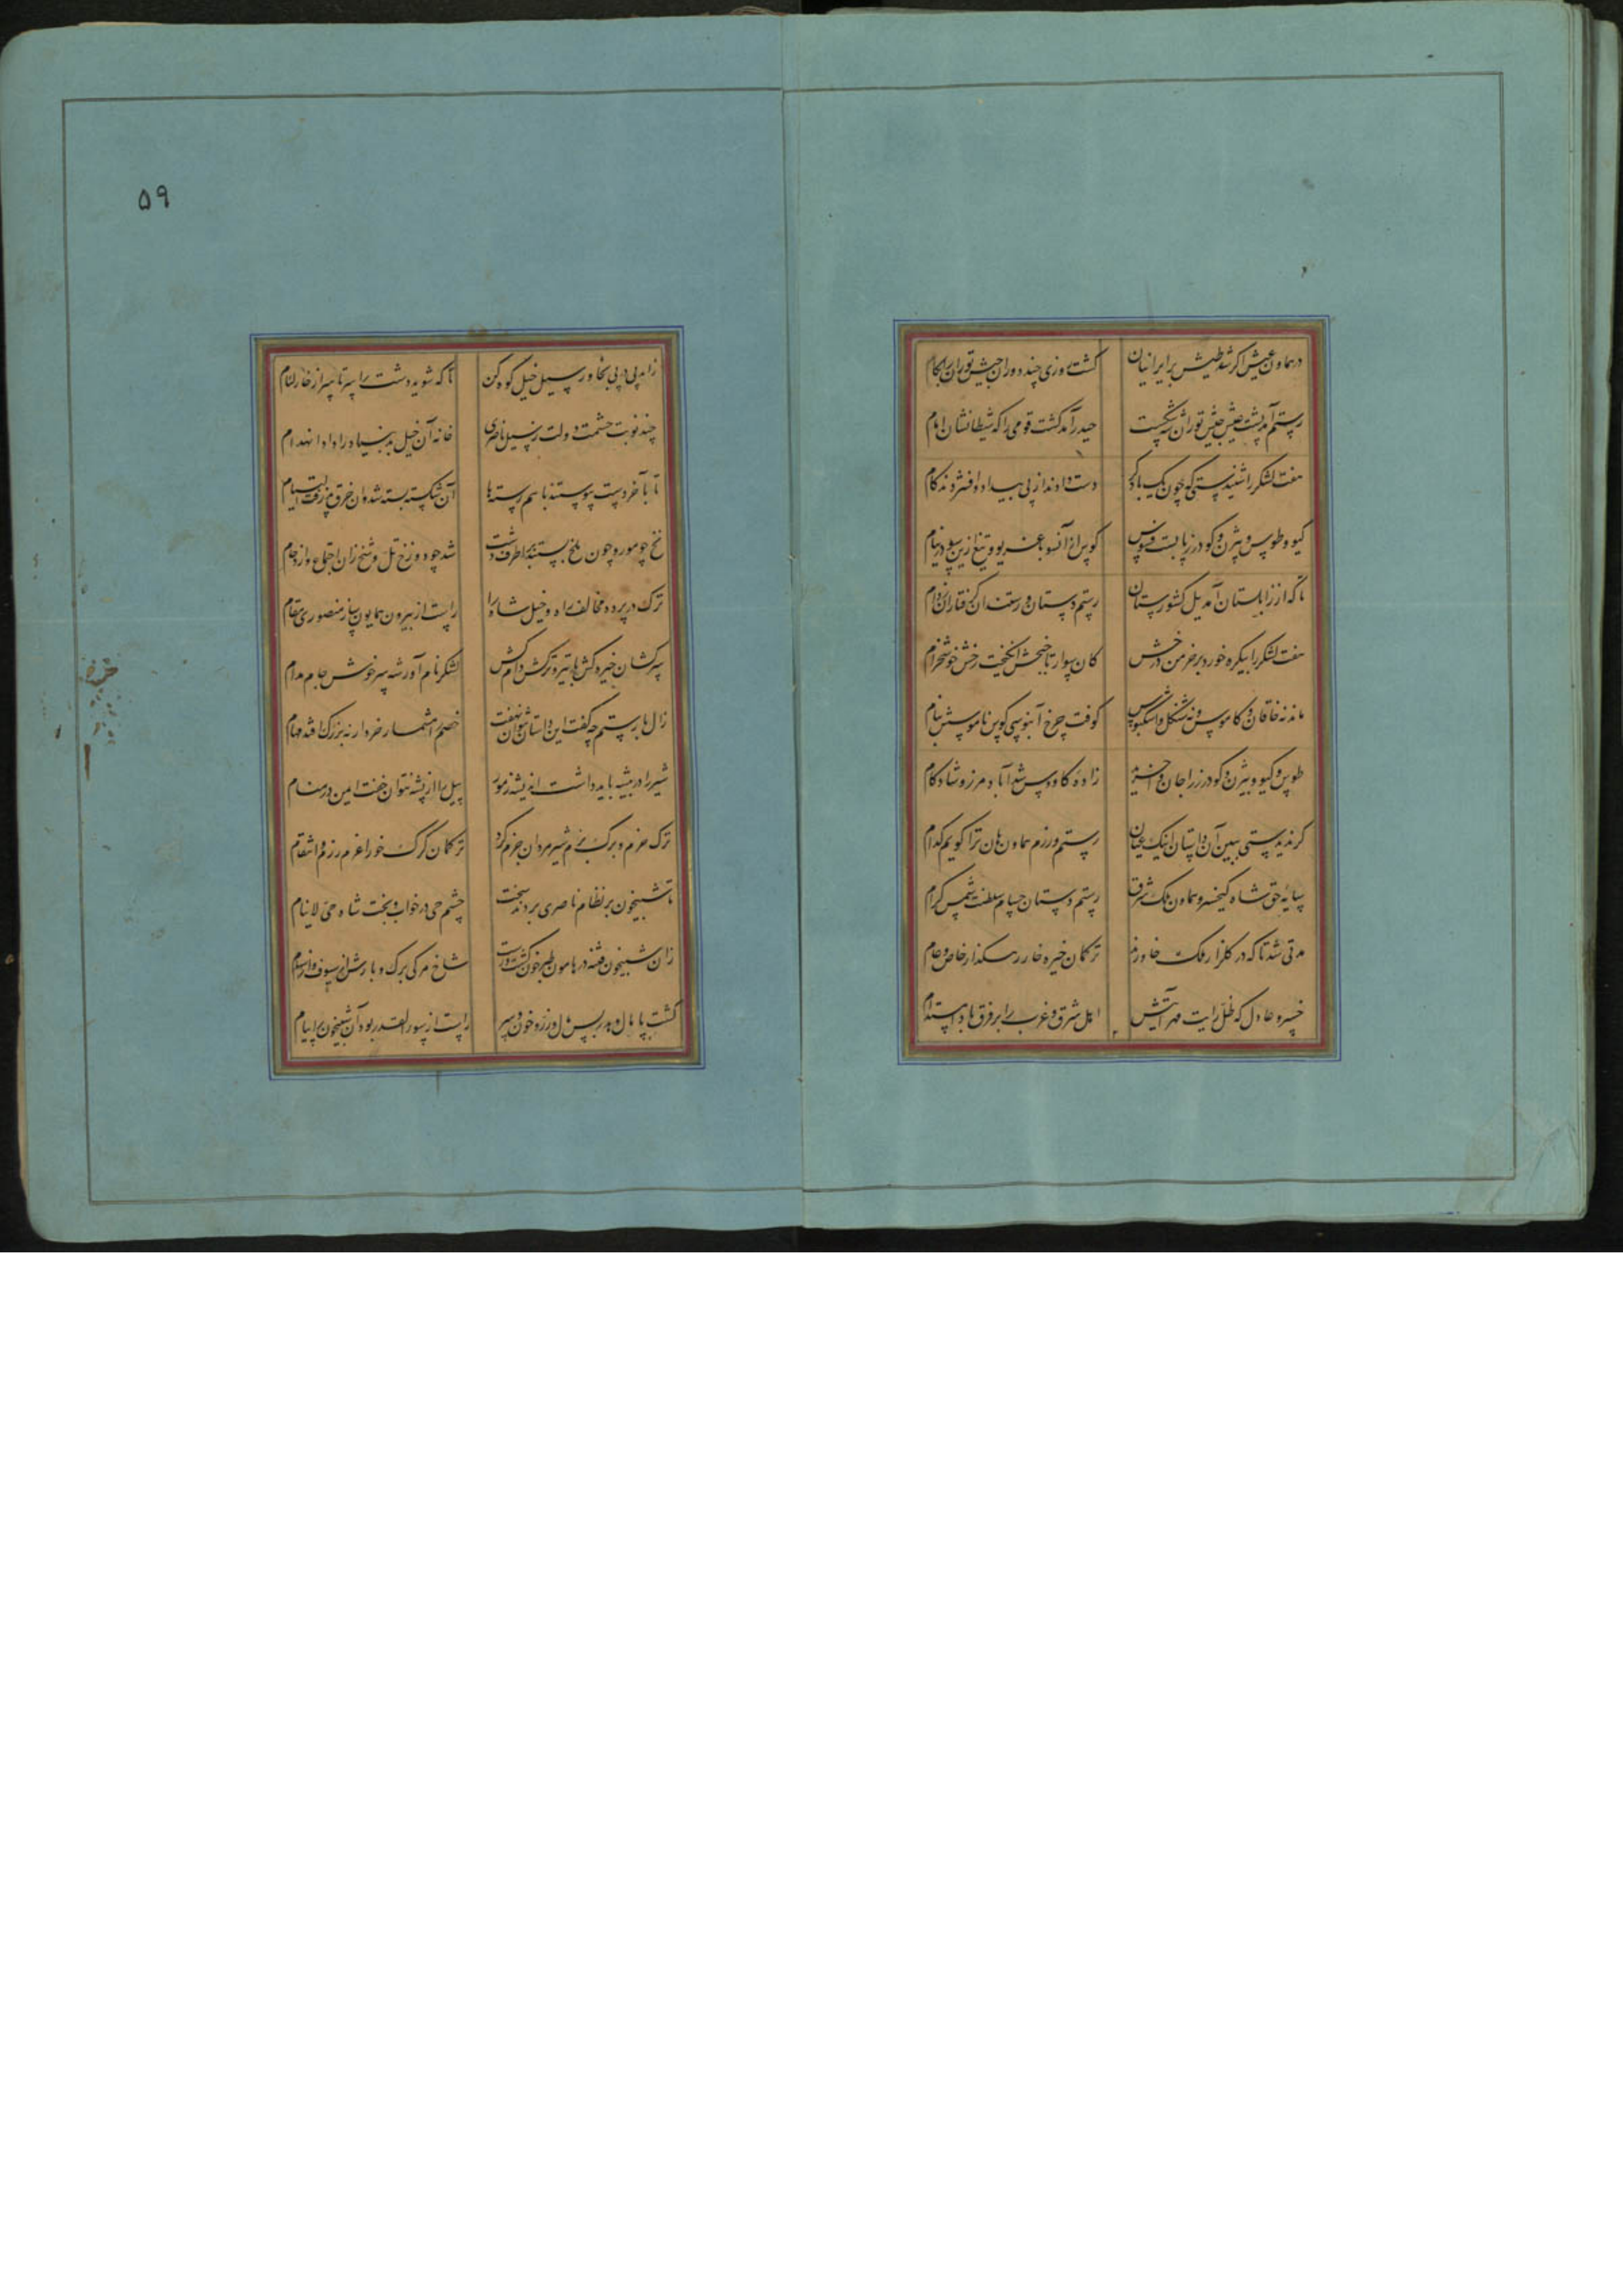 در هماون عیش اگر شد طیش بر ایرانیان گشت روزی چند دوران جیش توران را بکام
رستم آمد پشت جیش توران برشکست حیدر آمد کشت قومی را که شیطانشان امام
هفت لشکر را شنیدستی که چون یک باد کرد دست دادند از پی بیداد و افشردند گام
گیو و طوس و بیژن و گودرز را بست کوس از آنسو با غریو و تیغ زین سو در نیام
تا که از زابلستان آمد یل کشورستان رستم دستان و رستند آن گرفتاران ز دام
هفت لشکر را بیکره خورد بر خرمن درخش کان سوار تاجبخش انگیخت رخش خوشخرام
ماند نه خاقان و کاموس و نه شنگل و اشکبوس کوفت چرخ آبنوسی کوس ناموسش ببام
طوس و گیو و بیژن و گودرز را جان زاده کاووس شه آباد مرز و شادکام
گر ندیدستی ببین آن داستان اینک عیان رستم و رزم هماون هان ترا گویم کدام
سایه حق شاه کیخسرو هماون ملک شرق رستم دستان حسام سلطنت شمس کرام
مدتی شد تا که در گلزار ملک خاوران ترکمان خیره خار رهگذار خاص و عام
خسرو عادل که ظل رایت مهر آیتش اهل شرق و غرب را بر فرق بادا مستدام
۵۹
زاند پی در پی بخاور سیل خیل کوه کن تا که شوید دشت را سر تا سر از خار لئام
چند نوبت حشمت دولت ز سیل ناصری خانه آن خیل بد بنیاد را داد انهدام
تا بآخر دست پیوستند با هم رسته‌ها آن شکسته بسته شد وان خرق رفت التیام
نخ چو مور و چون ملخ بستند اطرف دشت شد چو دوزخ تل و شخ زان اجتماع و ازدحام
ترک در پرده مخالف راه و خیل شاه را رایت از بیرون همایون ساز منصوری مقام
سرکشان خیره‌کش با تیر و ترکش دام کش لشکر نام آور شه سرخوش جام مدام
زال با رستم چه گفت این داستان نتوان نهفت خصم را مشمار خرد ار نه بزرگ افتد مهام
شیر را در بیشه باید داشت اندیشه ز مور پیل را از پشه نتوان خفت ایمن در منام
ترک حزم و برگ بزم شیر مردان جزم کرد ترکمان گرگ خو را عزم رزم و انتقام
تا شبیخون بر نظام ناصری برد چشم حی در خواب و بخت شاه حی لا ینام
زان شبیخون فتنه در هامون طبر خون گشت و رست شاخ مرگی برگ و بارش از سیوف و از سهام
گشت پامال رایت از سور القدر بود آن شبیخون را پیام